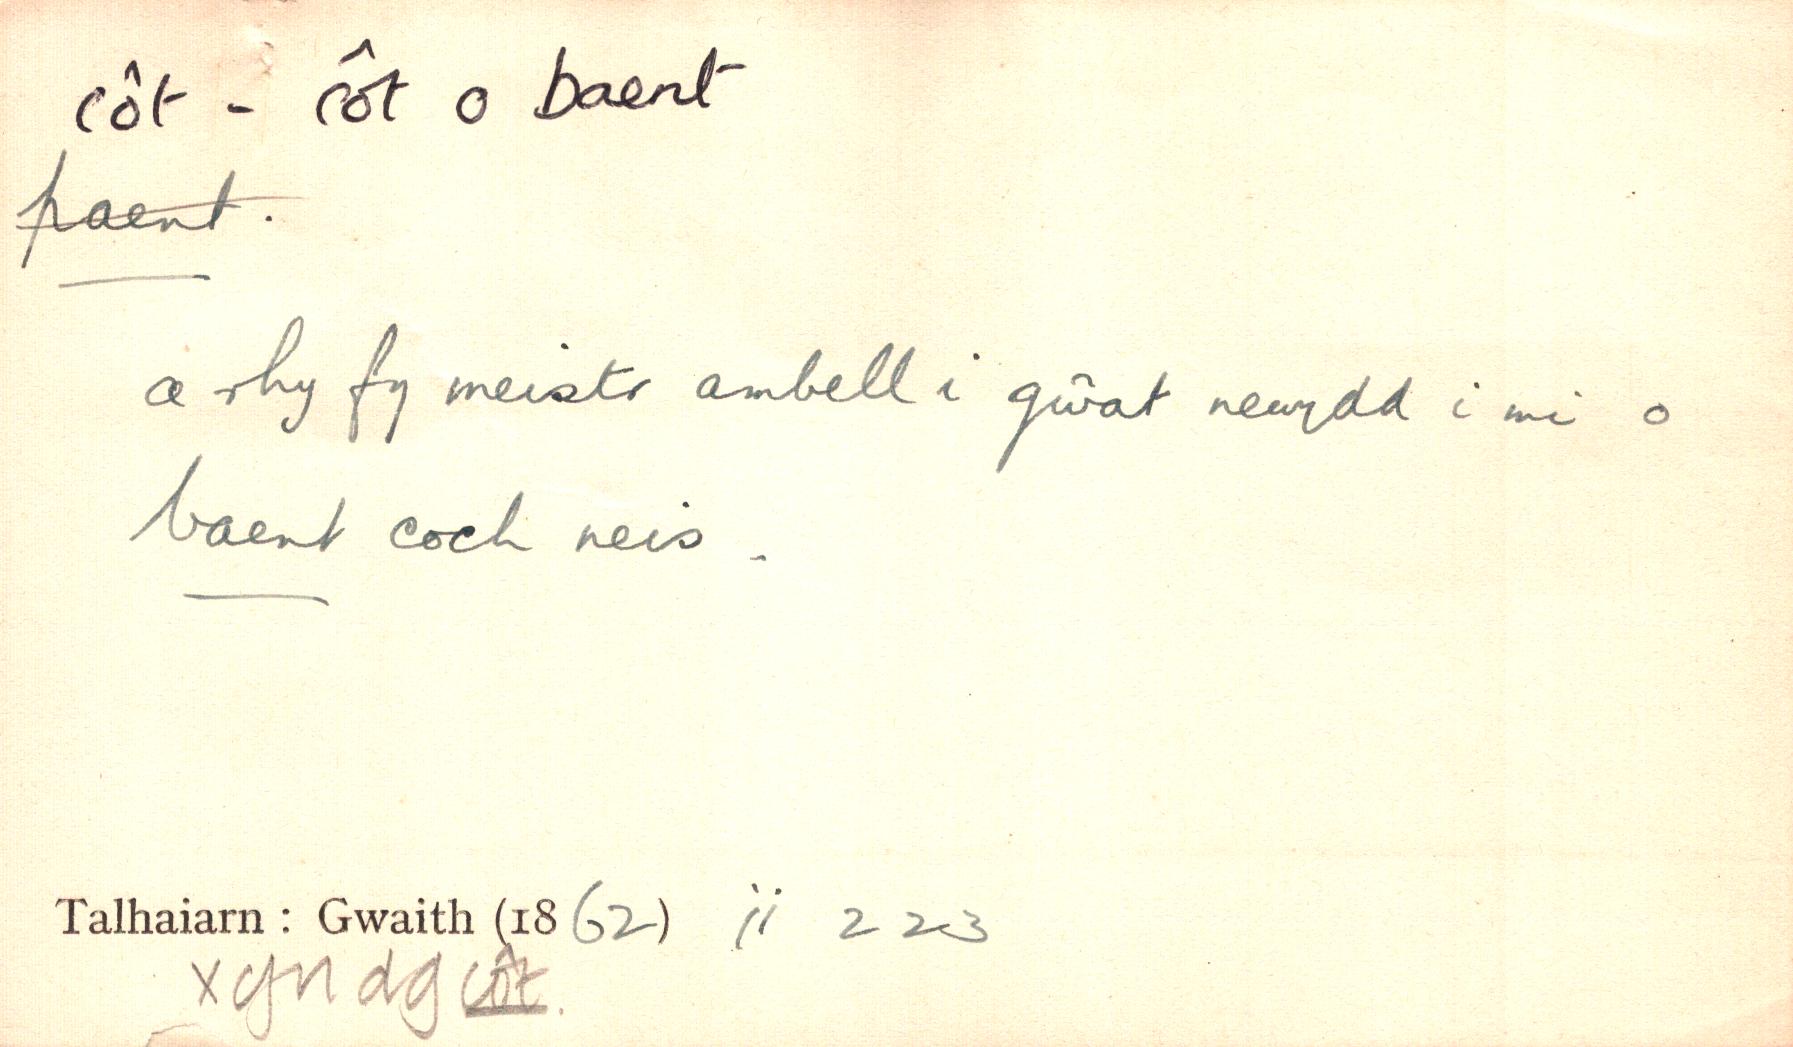 côt - côt o baent
paent.
a rhy fy meistr ambell i gŵat newydd i mi o
baent coch neis.
Talhaiarn : Gwaith (1862) ii 223
x yn dg côt.